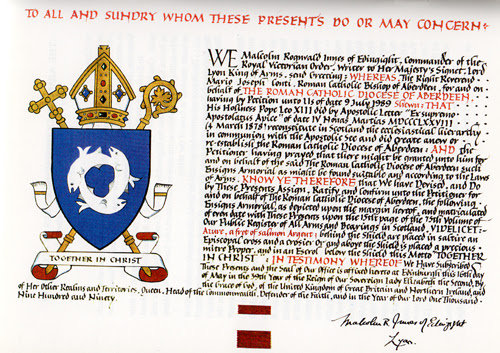 TO ALL AND SUNDRY WHOM THESE PRESENTS DO OR MAY CONCERN
WE Malcolm Rognvald Innes of Edingight, Commander of the
Royal Victorian Order, Writer to Her Majesty's Signet, Lord
Lyon King of Arms, send Greeting: WHEREAS, The Right Reverend
Mario Joseph Conti, Roman Catholic Bishop of Aberdeen, for and on
behalf of THE ROMAN CATHOLIC DIOCESE OF ABERDEEN,
having by Petition unto Us of date 9 July 1989 Shewn: THAT
His Holiness Pope Leo XIII did by Apostolic Letter "Ex supremo
Apostolatus Apice" of date IV Nonas Martias MDCCCLXXVIII
(4 March 1878) reconstitute in Scotland the ecclesiastical hierarchy
in communion with the Apostolic See and did create anew or
re-establish the Roman Catholic Diocese of Aberdeen: AND the
Petitioner having prayed that there might be granted unto him for
and on behalf of the said The Roman Catholic Diocese of Aberdeen such
Ensigns Armorial as might be found suitable and according to the Laws
of Arms. KNOW YE THEREFORE that We have Devised, and Do
by These Presents Assign, Ratify and Confirm unto the Petitioner for
and on behalf of The Roman Catholic Diocese of Aberdeen, the following
Ensigns Armorial, as depicted upon the margin hereof, and matriculated
of even date with These Presents upon the 15th page of the 75th Volume of
Our Public Register of All Arms and Bearings in Scotland, VIDELICET:
Azure, a fret of salmon Argent: behind the Shield are placed in saltire an
Episcopal cross and a crosier Or and above the Shield is placed a precious
mitre Proper, and in an Escrol below the Shield this Motto "TOGETHER
IN CHRIST": IN TESTIMONY WHEREOF We have Subscribed
These Presents and the Seal of Our Office is affixed hereto at Edinburgh this 16th day
of May in the 39th Year of the Reign of Our Sovereign Lady Elizabeth the Second, By
the Grace of God, of the United Kingdom of Great Britain and Northern Ireland, and
of Her Other Realms and Territories, Queen, Head of the Commonwealth, Defender of the Faith, and in the Year of Our Lord One Thousand
Nine Hundred and Ninety.
TOGETHER IN CHRIST
Malcolm R Innes of Edingight
Lyon.